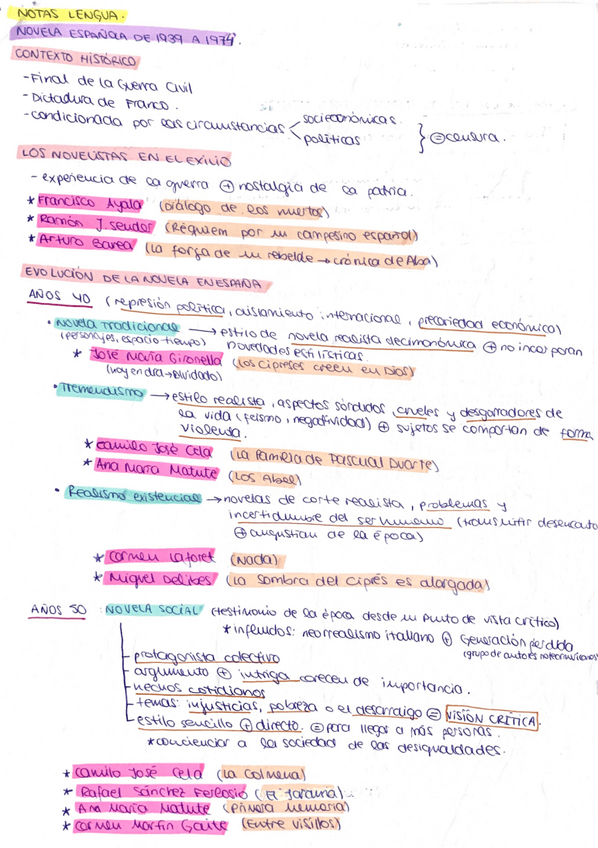 NOTAS LENGUA.
NOVELA ESPAÑOLA DE 1939 A 1974.
CONTEXTO HISTÓRICO
- Final de la Guerra Civil
- Dictadura de Franco.
- condicionada por las circunstancias < socioeconómicas. políticas } ⊜ censura.
LOS NOVELISTAS EN EL EXILIO
- experiencia de la guerra ⊕ nostalgia de la patria.
* Francisco Ayala (Diálogo de los muertos)
* Ramón J. Sender (Réquiem por un campesino español)
* Arturo Barea (La forja de un rebelde → crónica de Alba)
EVOLUCIÓN DE LA NOVELA EN ESPAÑA
AÑOS 40 (represión política, aislamiento internacional, precariedad económica)
• Novela Tradicional → estilo de novela realista decimonónica ⊕ no incorporan
(personajes, espacio tiempo) novedades estilísticas.
* José María Gironella (Los cipreses creen en Dios)
(hoy en día → olvidado)
• Tremendismo → estilo realista, aspectos sórdidos, crueles y desgarradores de
la vida (feísmo, negatividad) ⊕ sujetos se comportan de forma
violenta.
* Camilo José Cela (La Familia de Pascual Duarte)
* Ana María Matute (Los Abel)
• Realismo existencial → novelas de corte realista, problemas y
incertidumbre del ser humano (transmitir desencanto
⊕ angustian de la época)
* Carmen Laforet (Nada)
* Miguel Delibes (La sombra del ciprés es alargada)
AÑOS 50 : NOVELA SOCIAL (testimonio de la época desde un punto de vista crítico)
* influidos: neorrealismo italiano ⊕ Generación perdida
(grupo de autores norteamericanos)
- protagonista colectivo
- argumento ⊕ intriga carecen de importancia.
- hechos cotidianos
- temas: injusticias, pobreza o el desarraigo ⊜ VISIÓN CRÍTICA.
- estilo sencillo ⊕ directo. ⊜ para llegar a más personas.
* concienciar a la sociedad de las desigualdades.
* Camilo José Cela (La Colmena)
* Rafael Sánchez Ferlosio (El Jarama)
* Ana María Matute (Primera memoria)
* Carmen Martín Gaite (Entre Visillos)